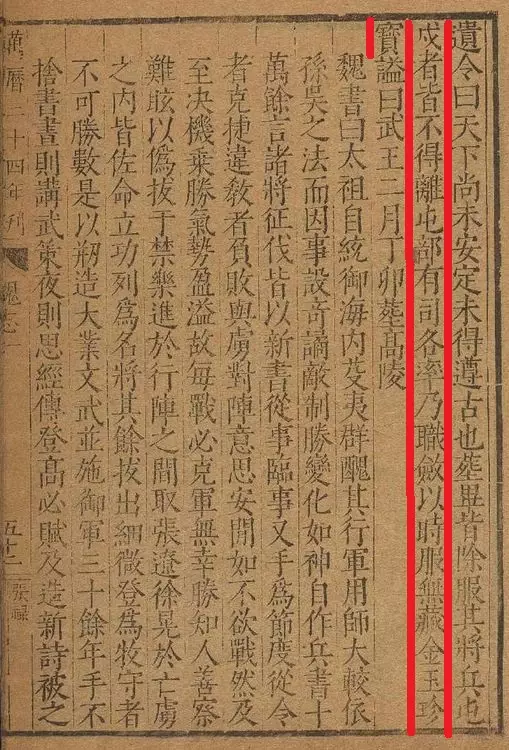 遺令曰天下尚未安定未得遵古也塟畢皆除服其將兵屯
戍者皆不得離屯部有司各率乃職斂以時服無藏金玉珍
寳諡曰武王二月丁卯塟髙陵
魏書曰太祖自統御海内芟夷群醜其行軍用師大較依
孫吳之法而因事設奇譎敵制勝變化如神自作兵書十
萬餘言諸將征伐皆以新書從事臨事又手爲節度從令
者克捷違敎者負敗與虜對陣意思安閒如不欲戰然及
至决機乘勝氣勢盈溢故每戰必克軍無幸勝知人善察
難眩以僞拔于禁樂進於行陣之間取張遼徐晃於亡虜
之内皆佐命立功列爲名將其餘拔出細微登爲牧守者
不可勝數是以刱造大業文武並施御軍三十餘年手不
捨書書則講武策夜則思經傳登髙必賦及造新詩被之
萬曆二十四年刋
五十二